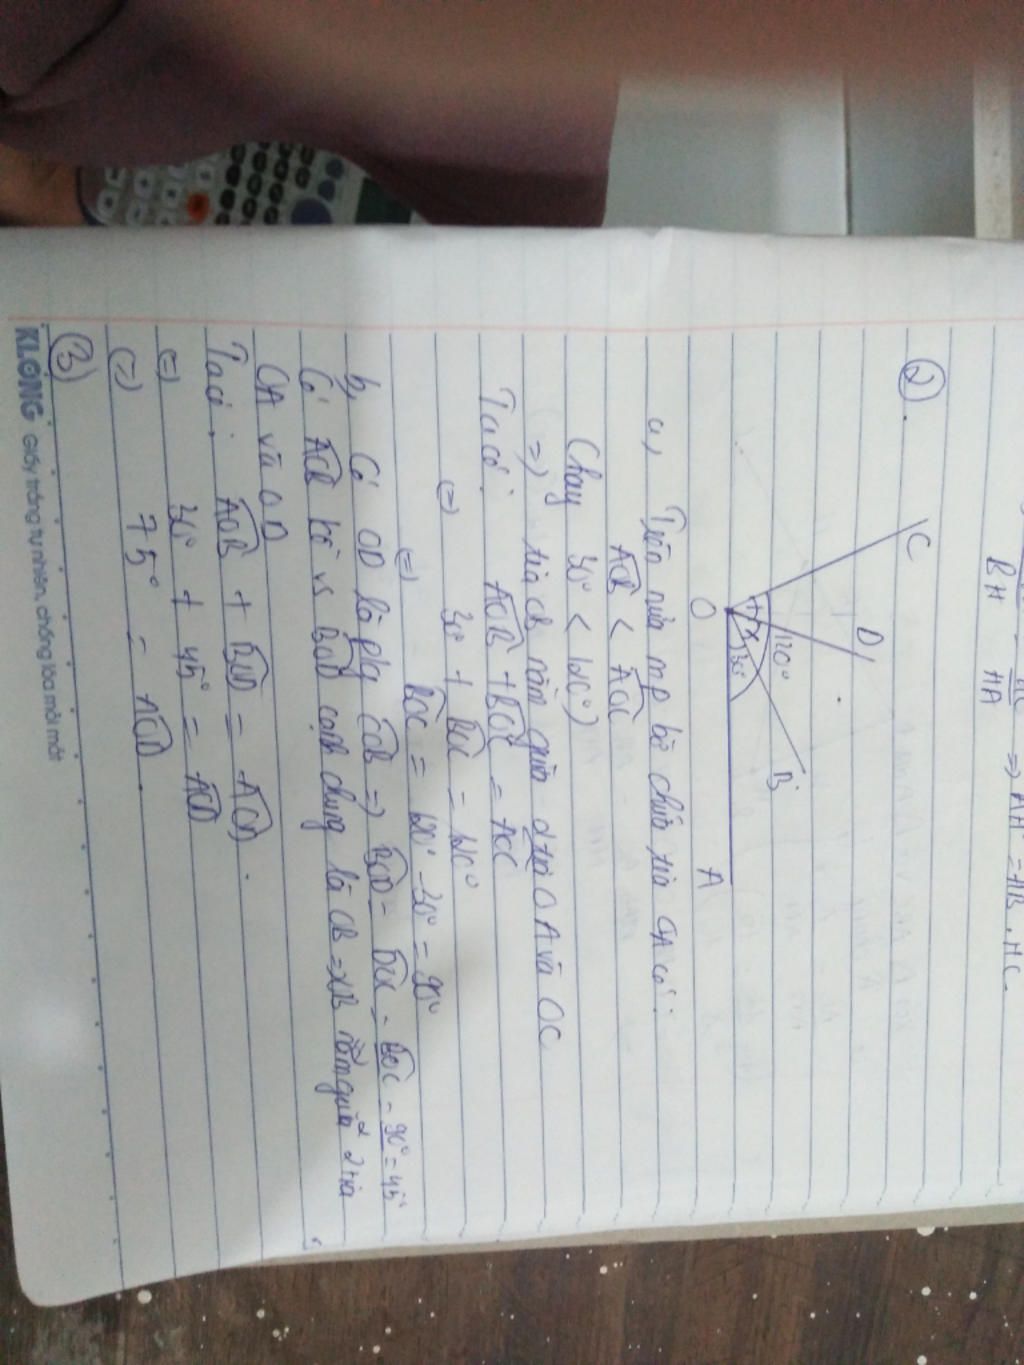 BH HA => AH = AB . HC
②.
C
D
120°
B
30°
O
A
a, Trên nửa mp bờ chứa tia OA có:
AOB < AOC
(hay 30° < 120°)
=> tia OB nằm giữa 2 tia OA và OC
Ta có: AOB + BOC = AOC
(=) 30° + BOC = 120°
(=) BOC = 120° - 30° = 90°
b, Có OD là p/g COB => BOD = DOC = BOC = 90° = 45°
Có AOB kề vs BOD cạnh chung là OB => OB nằm giữa 2 tia
OA và OD
Ta có: AOB + BOD = AOD.
(=) 30° + 45° = AOD
(=) 75° = AOD.
③
KLONG Giấy trắng tự nhiên, chống lóa mỏi mắt